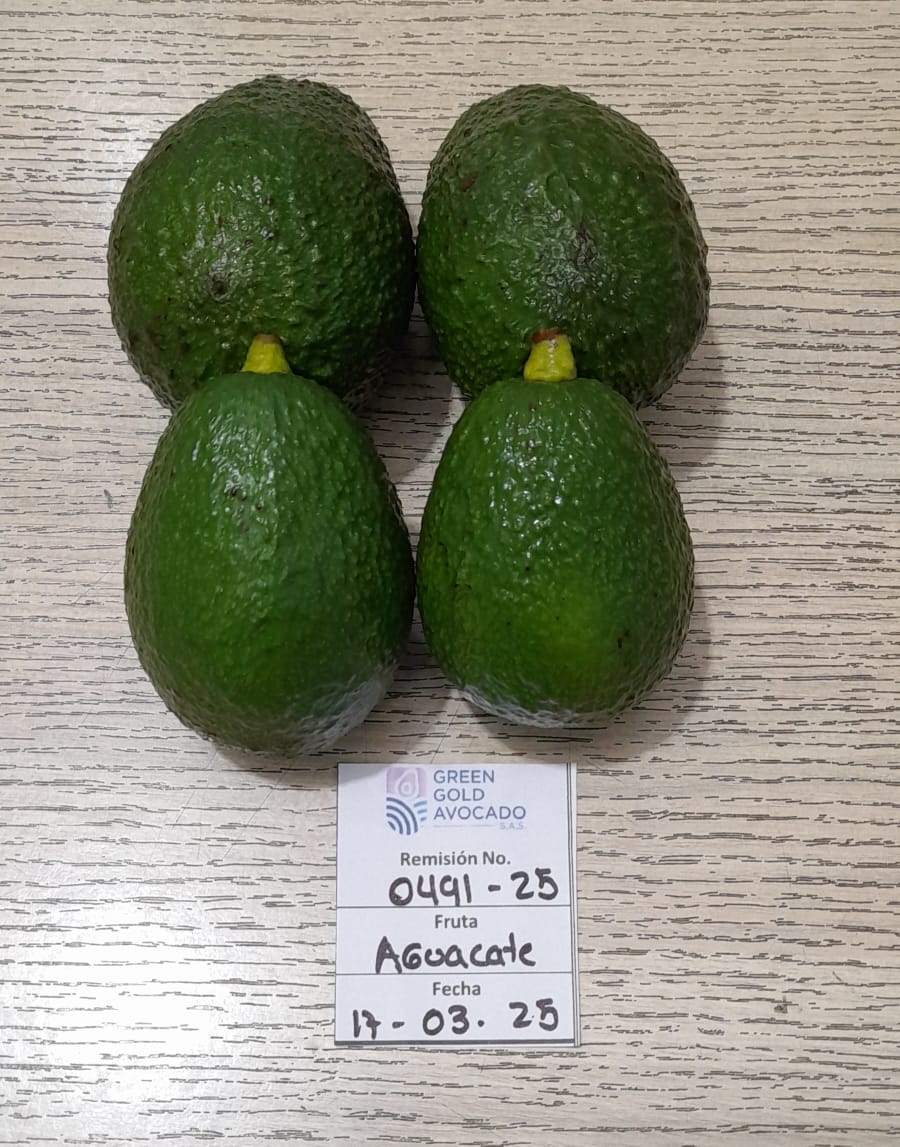 GREEN
GOLD
AVOCADO
S.A.S.
Remisión No.
0491-25
Fruta
AGuacate
Fecha
17-03. 25